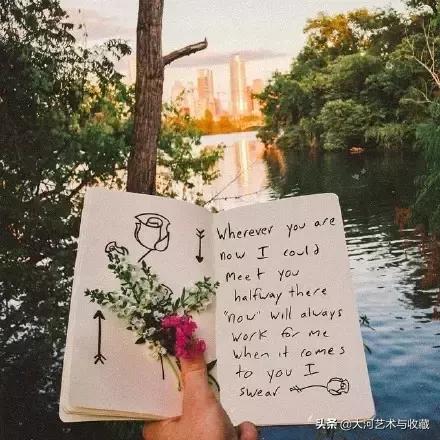 Wherever you are
now I could
meet you
halfway there
"now" will always
work for me
when it comes
to you I
swear
头条 @大河艺术与收藏